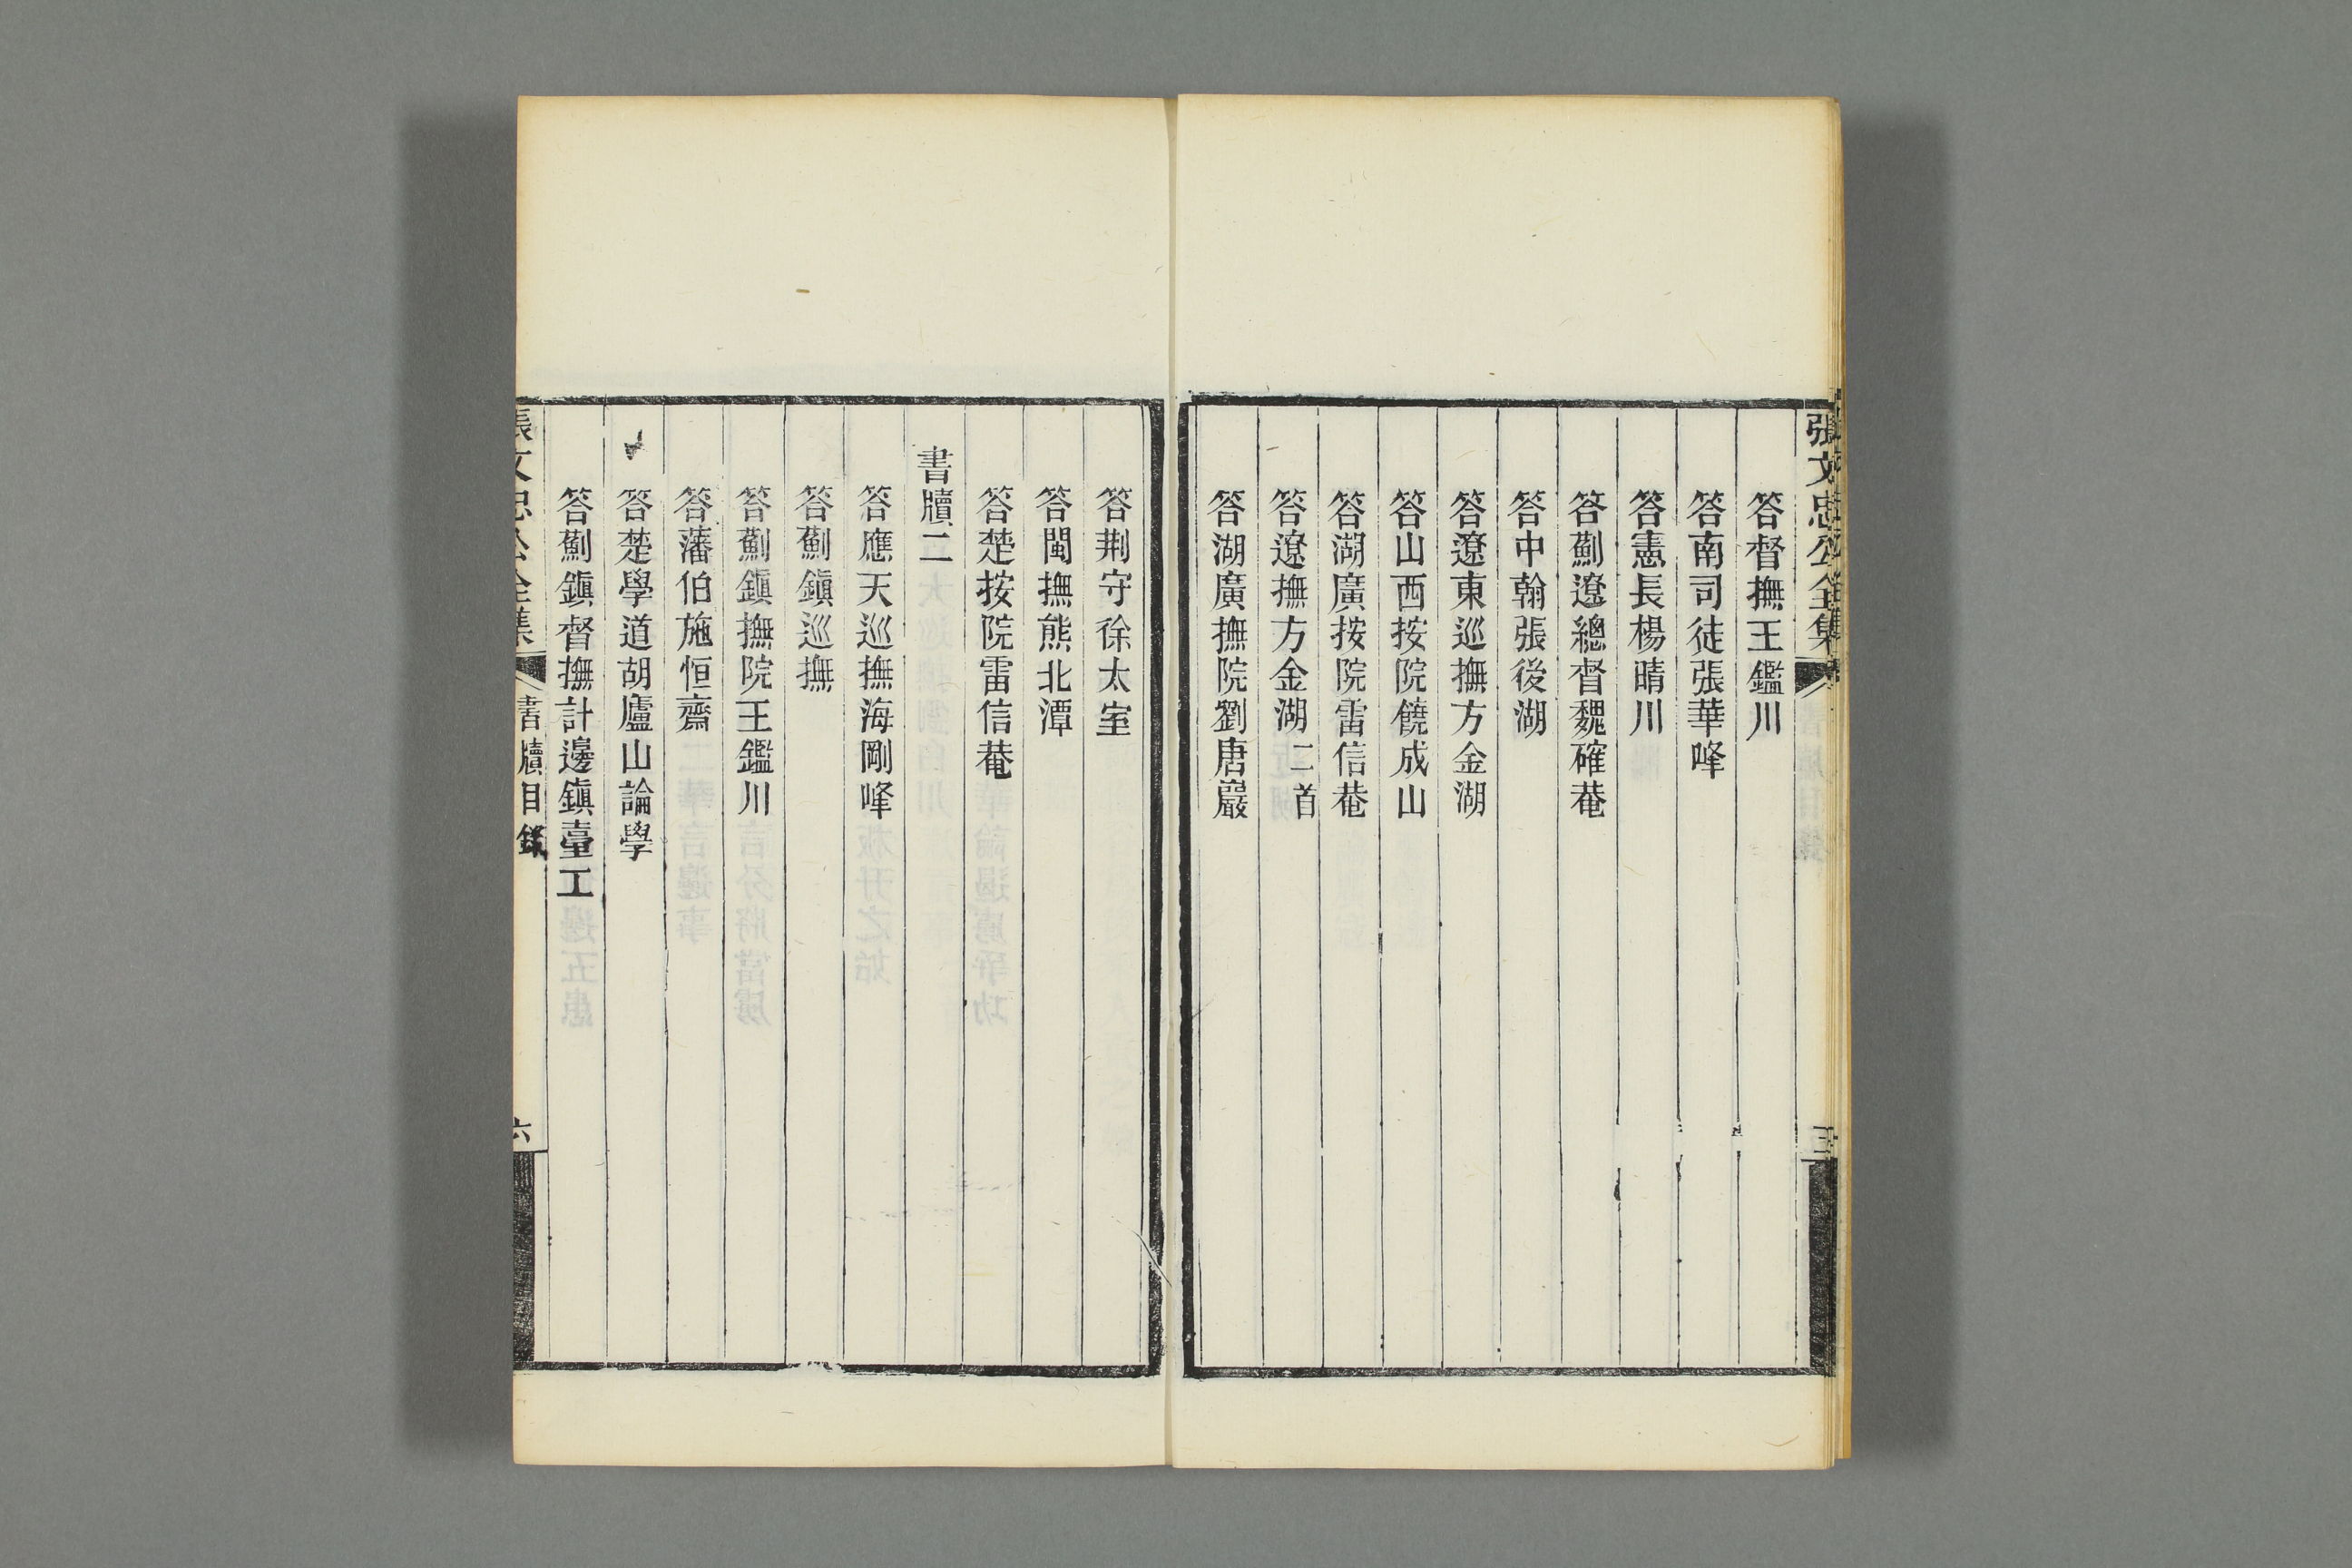 張文忠公全集
答督撫王鑑川
答南司徒張華峰
答憲長楊晴川
答薊遼總督魏確菴
答中翰張後湖
答遼東巡撫方金湖
答山西按院饒成山
答湖廣按院雷信菴
答遼撫方金湖二首
答湖廣撫院劉唐巖
答荆守徐太室
答閩撫熊北潭
答楚按院雷信菴
書牘二
答應天巡撫海剛峰
答薊鎮巡撫
答薊鎮撫院王鑑川
答藩伯施恒齋
答楚學道胡廬山論學
答薊鎮督撫計邊鎮臺工
張文忠公全集 書牘目錄 六